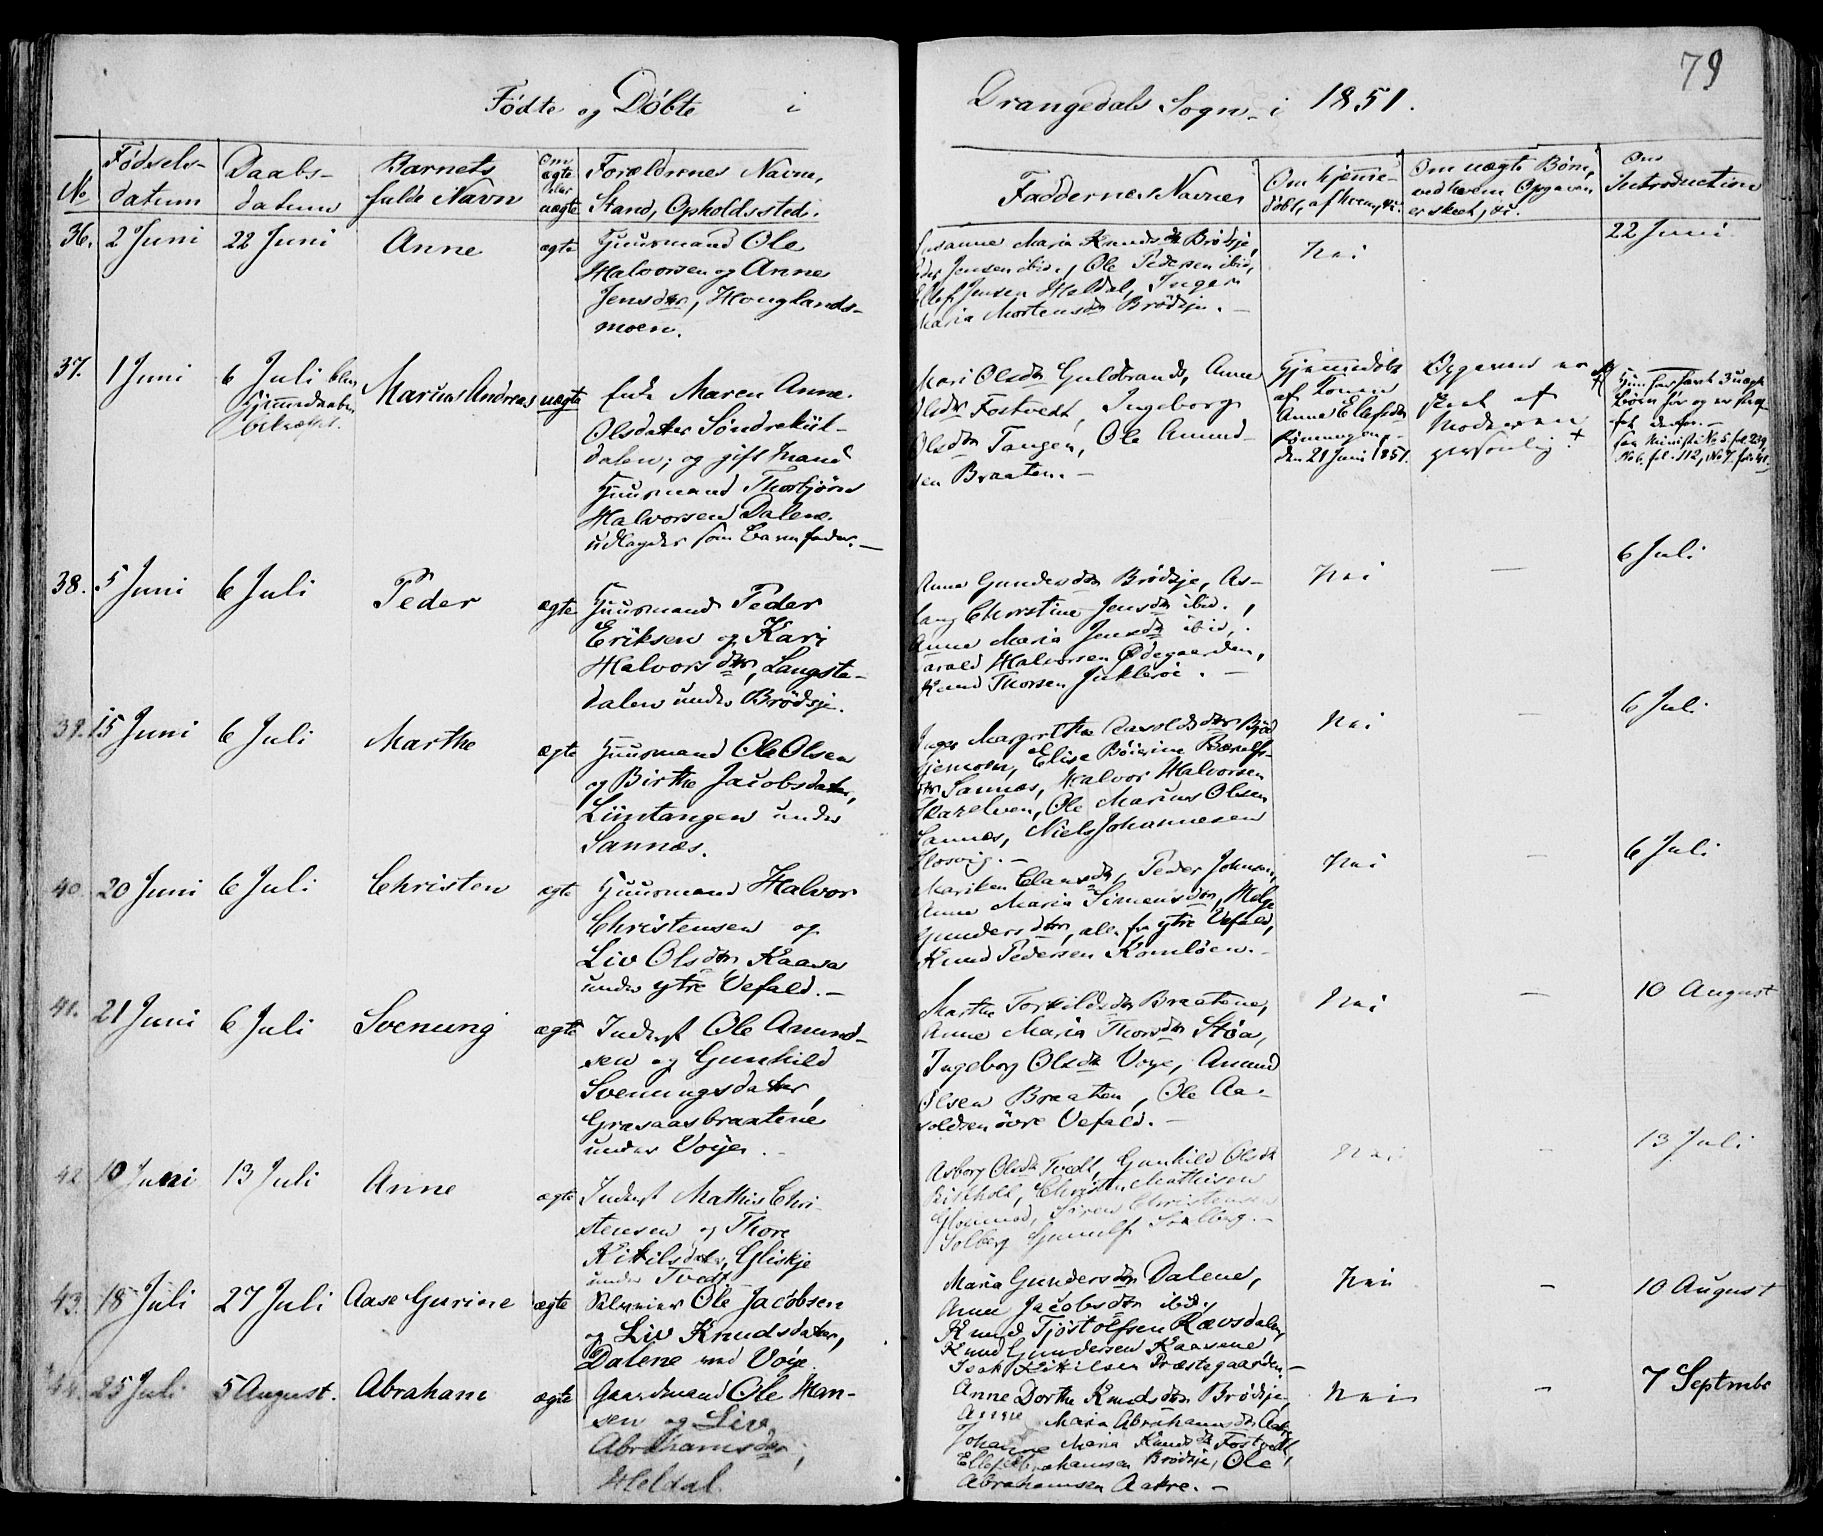 79
Fødte og Døbte i Drangedals Sogn i 1851.
No
Fødsels-
datum
Daabs-
datum
Barnets
fulde Navn
Om
ægte
eller
uægte
Forældrenes Navn,
Stand, Opholdssted.
Faddernes Navne
Om hjemme-
døbt, af hvem, &c.
Om uægte Børn,
ved hvem Opgaven
er skeet, &c.
Om
Introduction
36. 2 Juni 22 Juni Anne ægte
Huusmand Ole
Halvorsen og Anne
Jensdtr, Houglands-
moen.
Susanne Maria Knudsdtr Brødsje,
Peder Jensen ibid., Ole Pedersen ibid,
Ellef Jensen Heldal, Inger
Maria Mortensdtr Brødsje. -
Nei
22 Juni
37. 1 Juni 6 Juli blev
Hjemmedaaben
bekræftet.
Marius Andreas uægte
Maren Anne
Olsdatter Søndrekiil-
dalen; og gift Mand
Huusmand Thorbjørn
Halvorsen Dalene
udlagder som Barnefader. -
Kari Olsdtr Guldbrands, Anne
Olsdtr Fostvedt, Ingeborg
Olsdtr Tangen, Ole Amund-
sen Braaten. -
Hjemmedøbt
af Konen
Anne Elefsdtr
den 21 Juni 1851.
Opgaven er
skeet af
Moderen
personlig. +
Hun har havt 3 uægte
Børn før og er
38. 5 Juni 6 Juli Peder ægte
Huusmand Peder
Eriksen og Kari
Halvorsdtr, Langste-
dalen under Brødsje.
Anne Gundersdtr Brødsje, As-
laug Chirstine Jensdtr ibid.,
Anne Maria Jensdtr ibid.,
Harald Halvorsen Ødegaarden,
Knud Thorsen Jukleröe. -
Nei
-
6 Juli
39. 15 Juni 6 Juli Marthe ægte
Huusmand Ole Olsen
og Birthe Jacobsdatter,
Liintangen under
Sannæs.
Inger Margrethe Haroldsdtr
Elise
Sannæs, Halvor Halvorsen
Ole Marius Olsen
Sannæs, Niels Johannesen
Nei
-
6 Juli
40. 20 Juni 6 Juli Christen ægte
Huusmand Halvor
Christensen og
Liv Olsdtr Kaasa
under ytre Vefald. -
Mariken Clausdtr, Peder Johnsen,
Anne Maria Simonsdtr, Helge
Gundersdtr, alle fra ytre Vefald,
Knud Pedersen Komløen. -
Nei
-
6 Juli
41. 21 Juni 6 Juli Svenung ægte
Inderst Ole Amund-
sen og Gunhild
Svenungsdatter,
Grasaasbraatene
under Voje. -
Marthe Torkildsdtr Braatene,
Anne Maria Thorsdtr Støa,
Ingeborg Olsdtr Voje, Amund
Olsen Braaten, Ole Aa-
voldsen övre Vefald. -
Nei
-
10 August
42. 10 Juni 13 Juli Anne ægte
Inderst Mathis Chri-
stensen og Thore
Kitilsdatter, Gliskje
under Tvedt
Asborg Olsdtr Tvedt, Gunhild Olsdtr
Christen Mathisen
Søren Christensen
Solberg
Nei
-
13 Juli
43. 18 Juli 27 Juli Aase Gurine ægte
Selveier Ole Jacobsen
og Liv Knudsdatter,
Dalene ved Voje.
Maria Gundersdtr Dalene,
Anne Jacobsdtr ibid.,
Knud Tjøstolfsen Rævsdalen,
Knud Gundersen Kaasene
Isak Kitilsen Præstegaarden. -
Nei
-
10 August
44. 25 Juli 5 August. Abraham ægte
Gaardmand Ole Han-
sen og Liv
Abrahamsdtr,
Heldal.
Anne Dorthe Knudsdtr Brødsje,
Anne Maria Abrahamsdtr Aakre,
Johanne Maria Knudsdtr Fostvedt,
Ellef Abrahamsen Brødsje, Ole
Abrahamsen Aakre. -
Nei
-
7 Septmbr